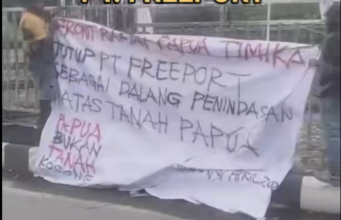 FRONT RAKYAT PAPUA TIMIKA
TUTUP PT FREEPORT
SEBAGAI DALANG PENINDASAN
DIATAS TANAH PAPUA
PAPUA
BUKAN
TANAH
KOSONG